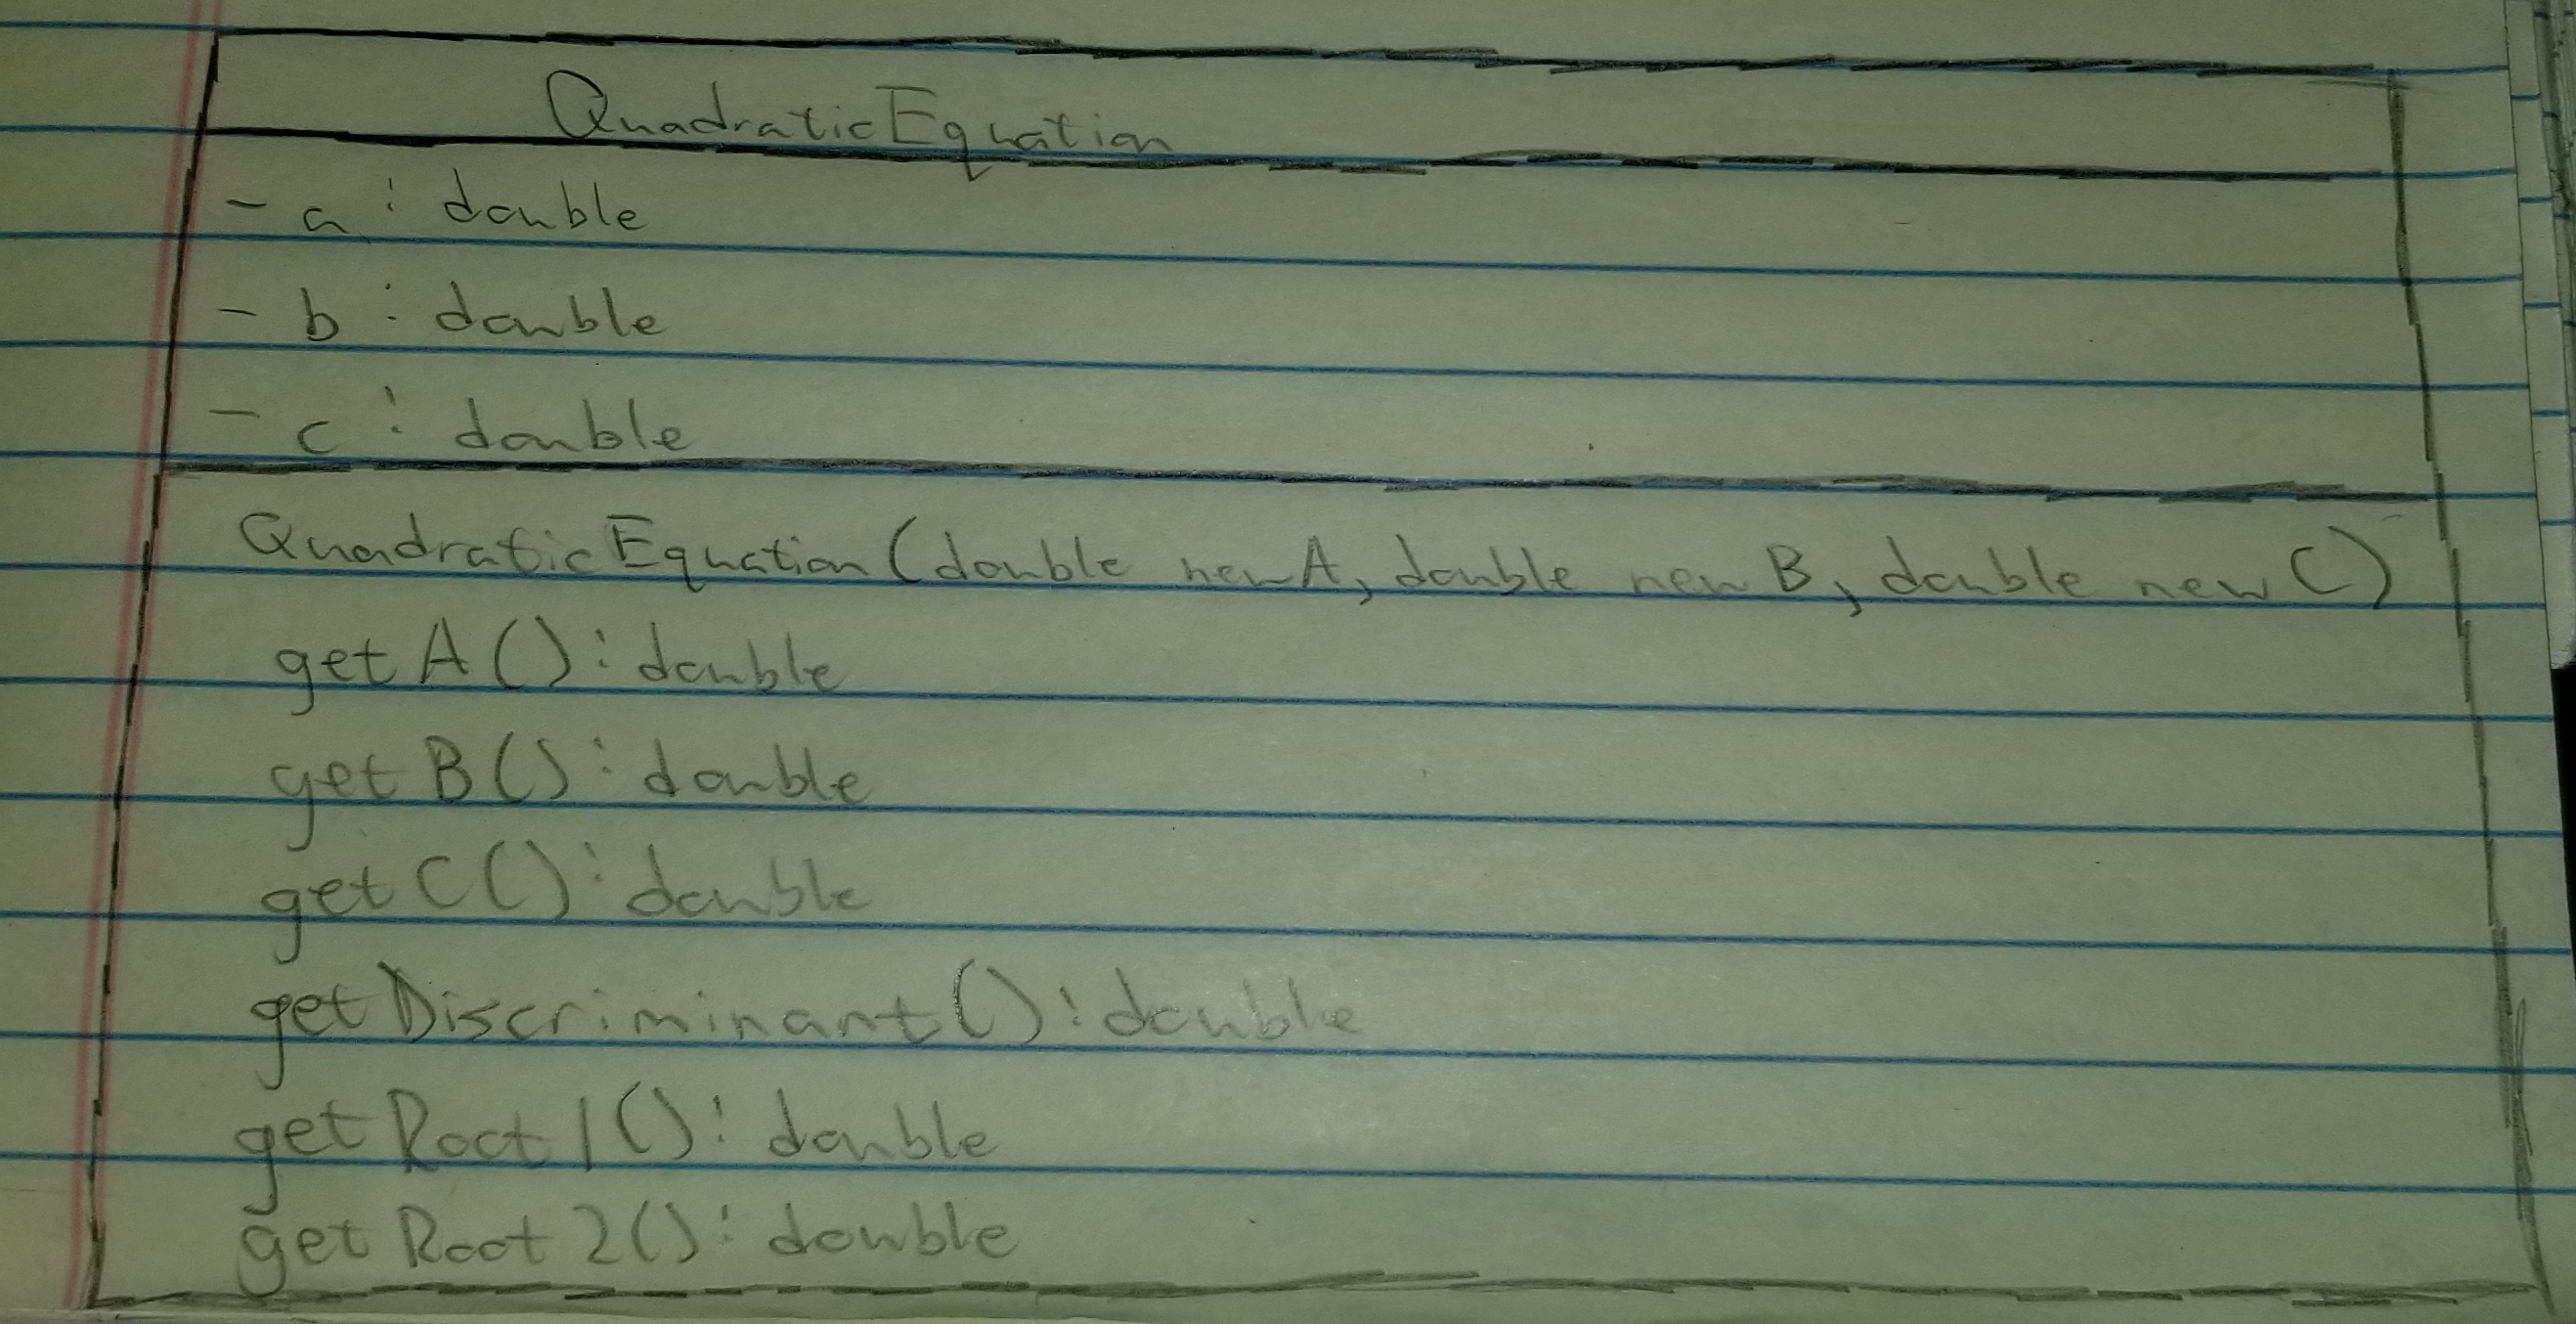 QuadraticEquation
- a : double
- b : double
- c : double
QuadraticEquation (double newA, double newB, double newC)
getA() : double
getB() : double
getC() : double
getDiscriminant() : double
getRoot1() : double
getRoot2() : double